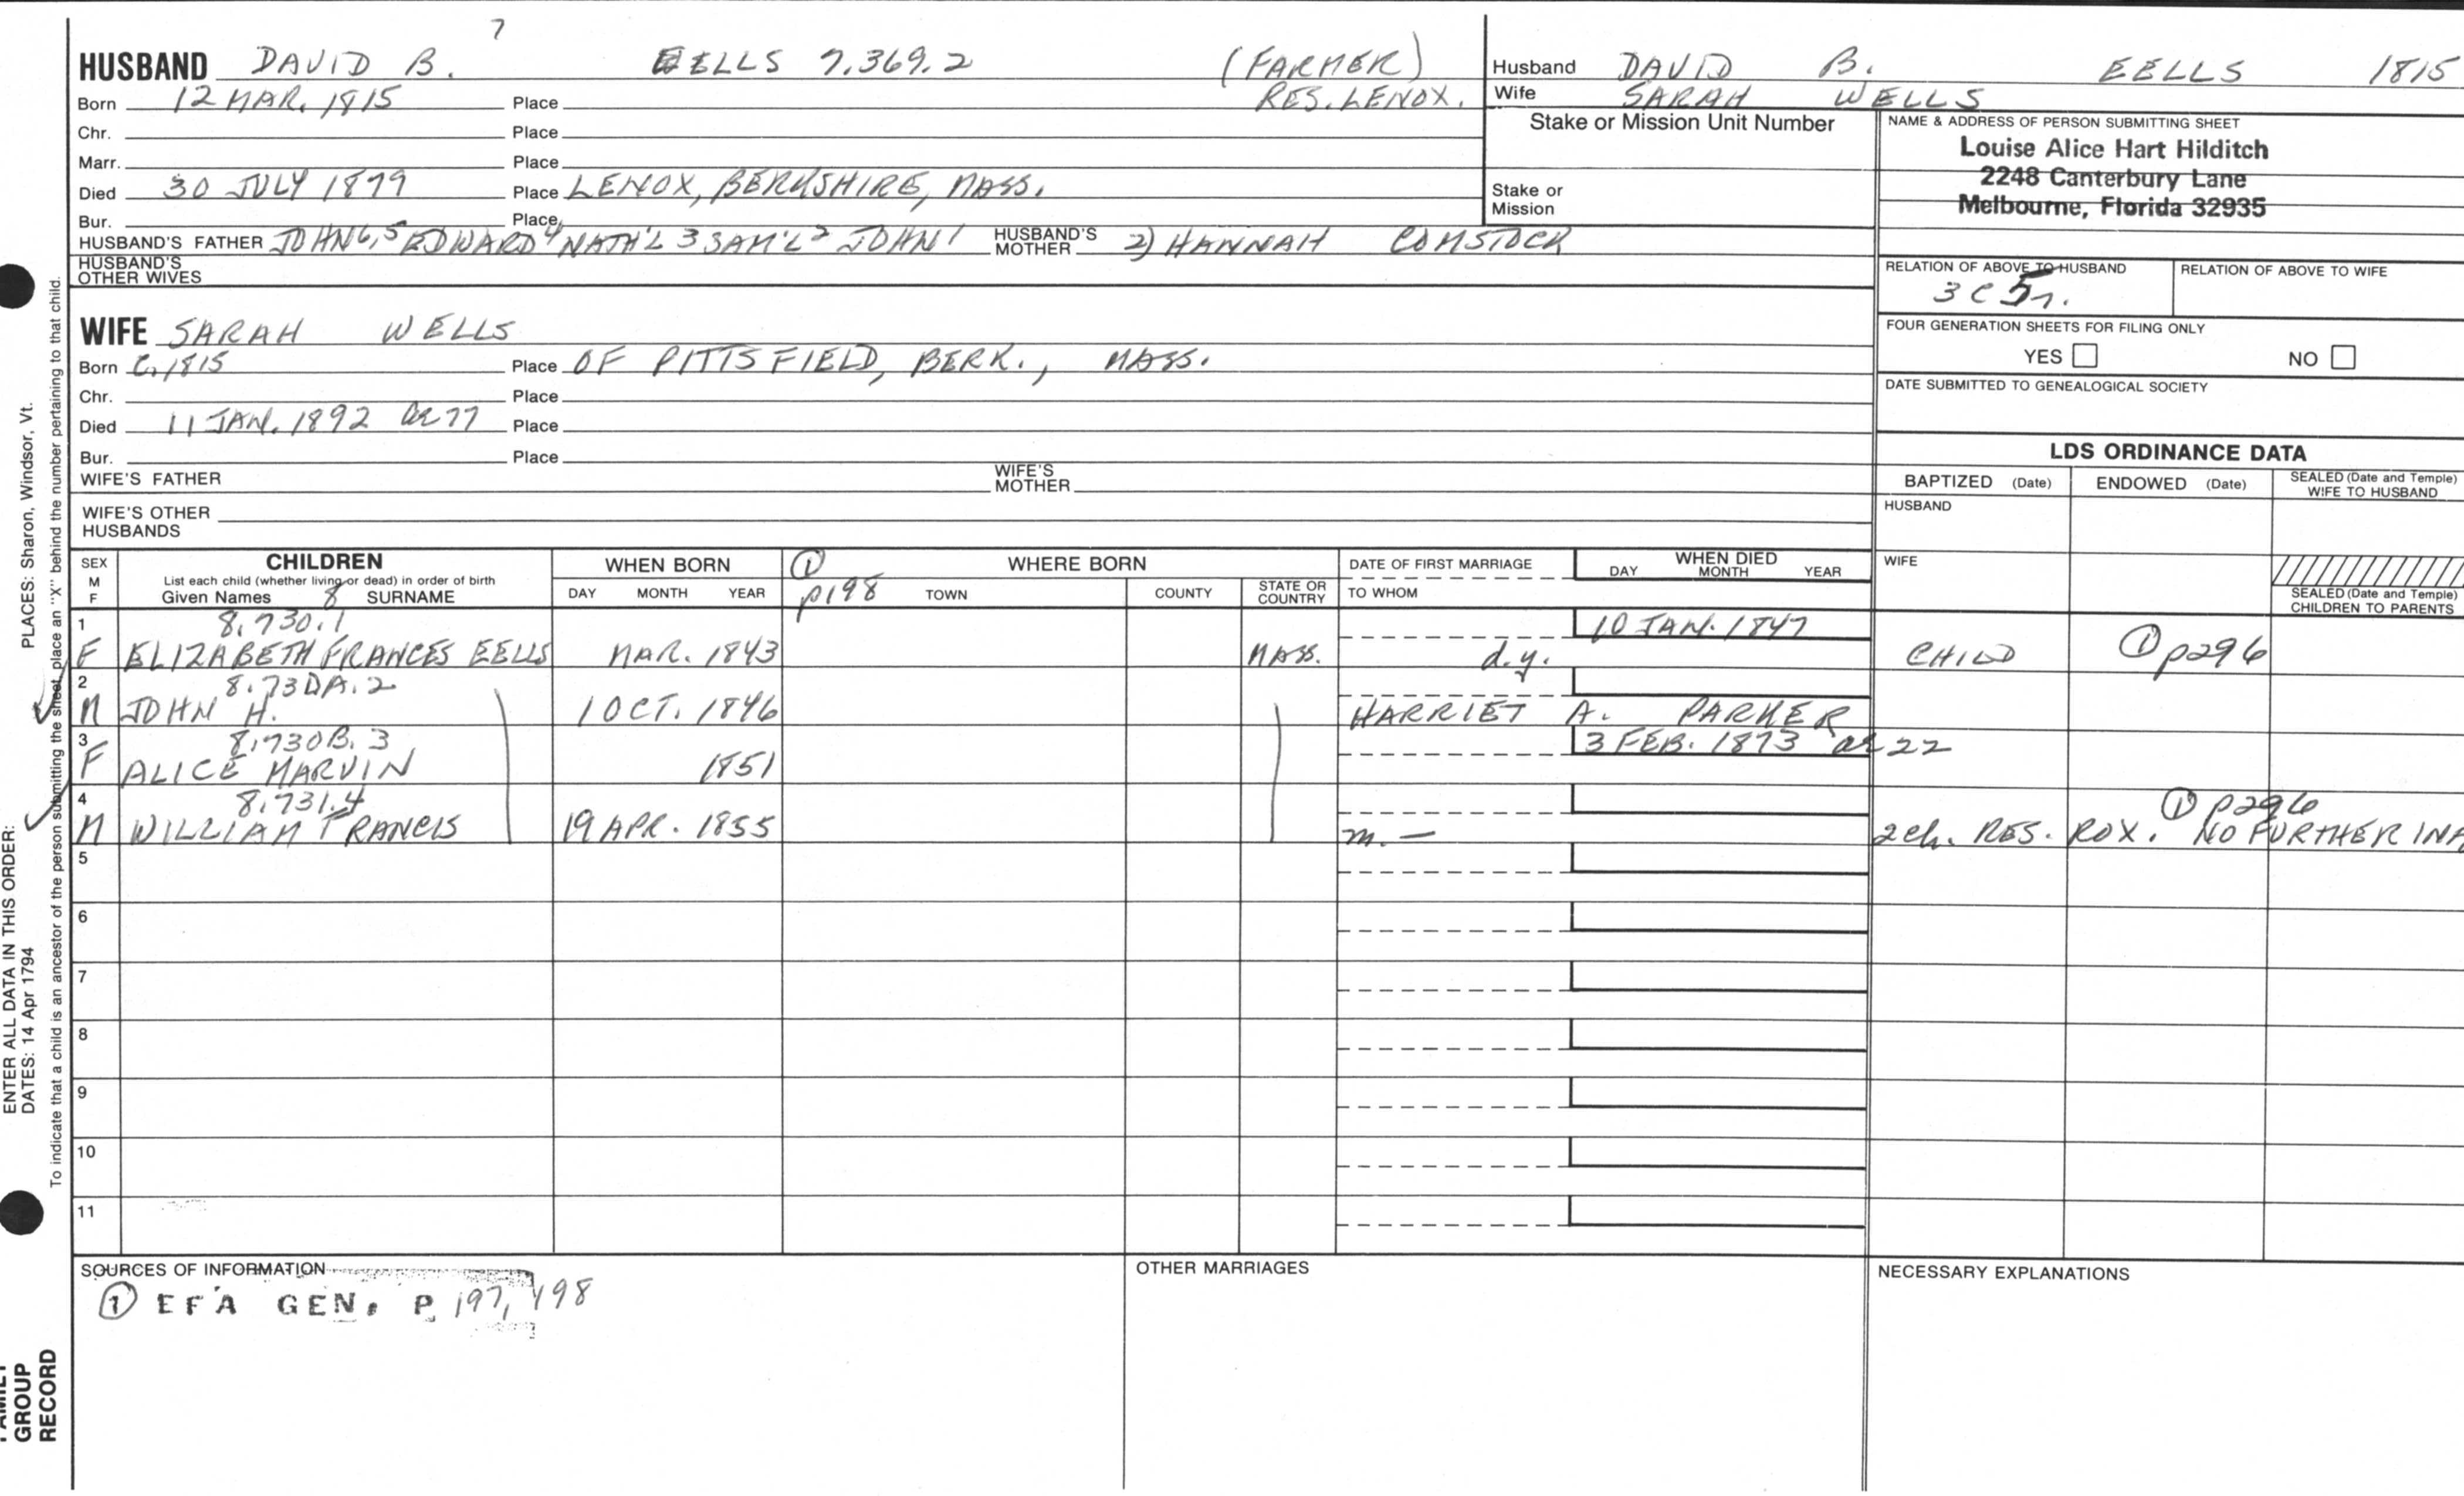 7
HUSBAND DAVID B. EELLS 7.369.2 (FARMER)
Born 12 MAR. 1815 Place RES. LENOX.
Chr. Place
Marr. Place
Died 30 JULY 1879 Place LENOX, BERKSHIRE, MASS.
Bur. Place
HUSBAND'S FATHER JOHN 6,5 EDWARD 4 NATH'L 3 SAM'L 2 JOHN 1 HUSBAND'S MOTHER 2) HANNAH COMSTOCK
HUSBAND'S OTHER WIVES
WIFE SARAH WELLS
Born C. 1815 Place OF PITTSFIELD, BERK., MASS.
Chr. Place
Died 11 JAN. 1892 ae 77 Place
Bur. Place
WIFE'S FATHER WIFE'S MOTHER
WIFE'S OTHER HUSBANDS
Husband DAVID B. EELLS 1815
Wife SARAH WELLS
Stake or Mission Unit Number
Stake or Mission
NAME & ADDRESS OF PERSON SUBMITTING SHEET
Louise Alice Hart Hilditch
2248 Canterbury Lane
Melbourne, Florida 32935
RELATION OF ABOVE TO HUSBAND RELATION OF ABOVE TO WIFE
3 C 5 r.
FOUR GENERATION SHEETS FOR FILING ONLY
YES NO
DATE SUBMITTED TO GENEALOGICAL SOCIETY
LDS ORDINANCE DATA
BAPTIZED (Date) ENDOWED (Date) SEALED (Date and Temple) WIFE TO HUSBAND
HUSBAND
WIFE
SEALED (Date and Temple) CHILDREN TO PARENTS
SEX M F
CHILDREN
List each child (whether living or dead) in order of birth
Given Names 8 SURNAME
WHEN BORN
DAY MONTH YEAR
① p198
WHERE BORN
TOWN COUNTY STATE OR COUNTRY
DATE OF FIRST MARRIAGE
TO WHOM
WHEN DIED
DAY MONTH YEAR
1 8.730.1 10 JAN. 1847
F ELIZABETH FRANCES EELLS MAR. 1843 MASS. d.y. CHILD ① p296
2 8.730A.2
M JOHN H. 1 OCT. 1846 HARRIET A. PARKER
3 8.730B.3 3 FEB. 1873 ae 22
F ALICE MARVIN 1851
4 8.731.4 ① p296
M WILLIAM FRANCIS 19 APR. 1855 m. — 2 ch. RES. ROX. NO FURTHER INF
5
6
7
8
9
10
11
SOURCES OF INFORMATION
① EFA GEN. P 197, 198
OTHER MARRIAGES
NECESSARY EXPLANATIONS
PLACES: Sharon, Windsor, Vt.
To indicate that a child is an ancestor of the person submitting the sheet, place an "X" behind the number pertaining to that child.
ENTER ALL DATA IN THIS ORDER:
DATES: 14 Apr 1794
FAMILY GROUP RECORD